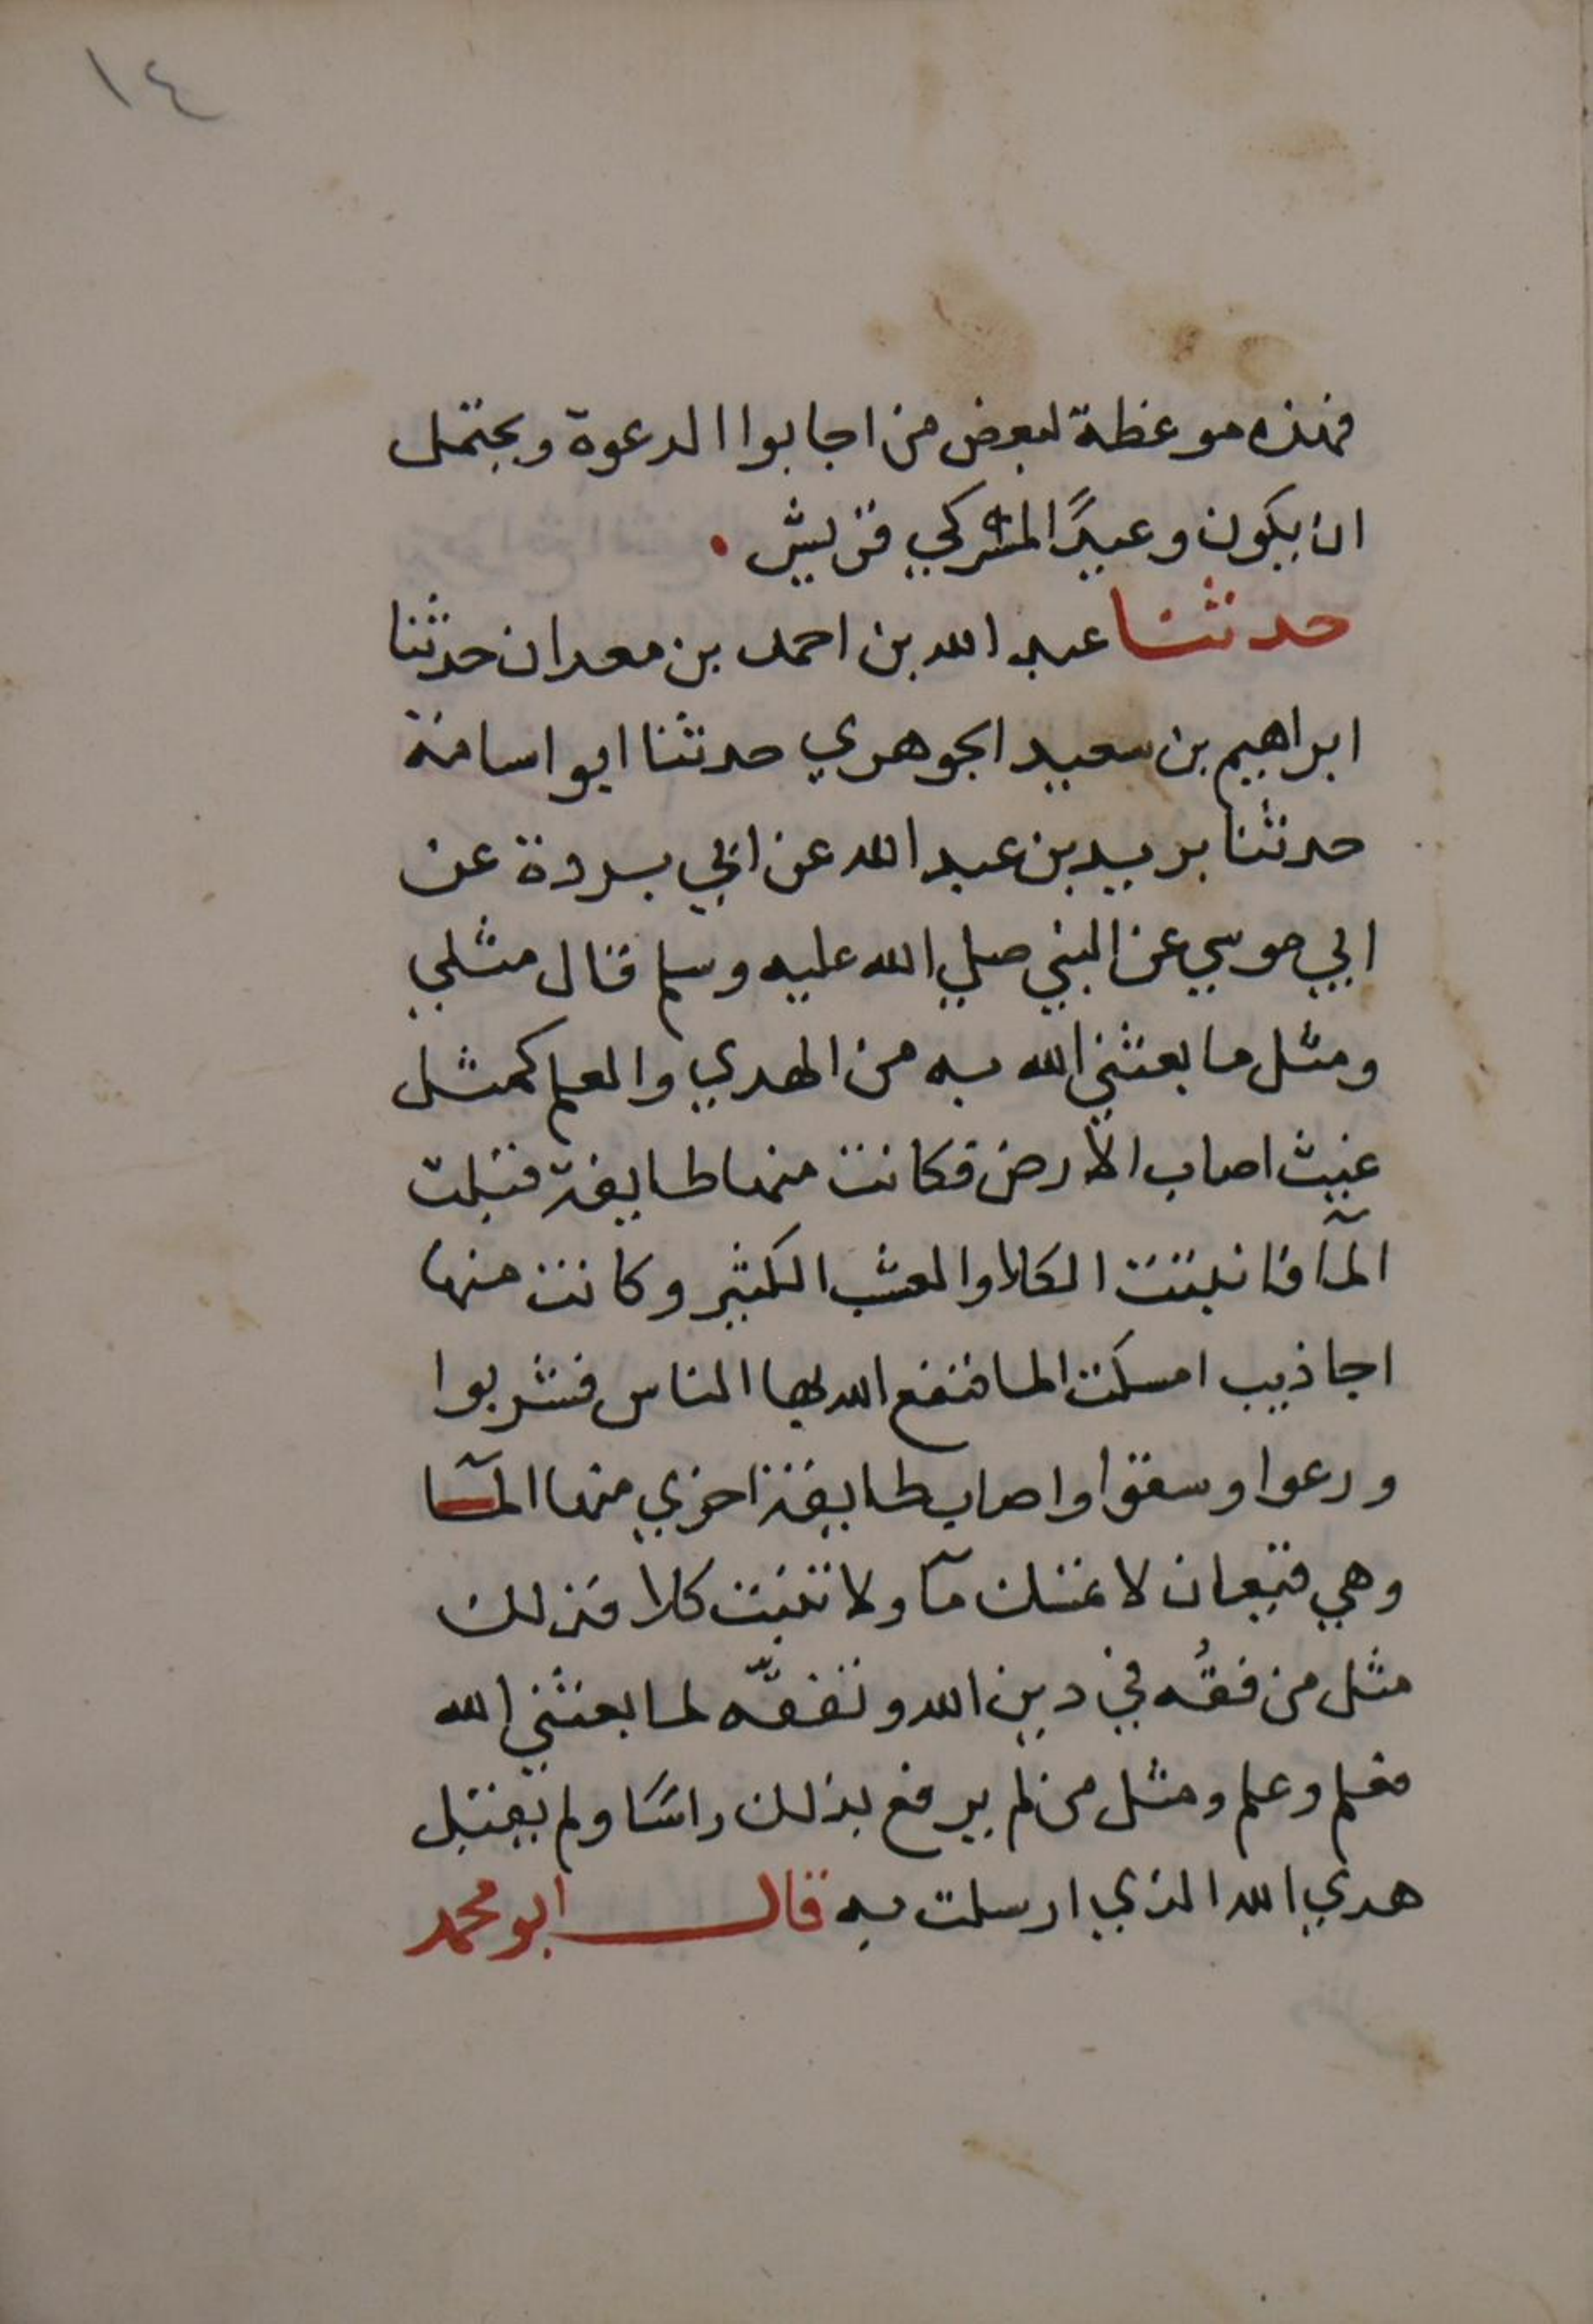 ١٤
فهذه موعظة لبعض من اجابوا الدعوة ويحتمل
ان يكون وعيدًا لمشركي قريش .
حدثنا عبد الله بن احمد بن معدان حدثنا
ابراهيم بن سعيد الجوهري حدثنا ابو اسامة
حدثنا بريد بن عبد الله عن ابي بردة عن
ابي موسي عن النبي صلي الله عليه وسلم قال مثلي
ومثل ما بعثني الله به من الهدي والعلم كمثل
غيث اصاب الارض فكانت منها طايفة قبلت
المآ فانبتت الكلا والعشب الكثير وكانت منها
اجاذيب امسكت الما فنفع الله بها الناس فشربوا
ورعوا وسقوا واصاب طايفة اخري منها المآ
وهي قيعان لا تمسك مآ ولا تنبت كلا فذلك
مثل من فقُه في دين الله وتفقّه لما بعثني الله
فعلم وعلم ومثل من لم يرفع بذلك راسًا ولم يقبل
هدي الله الذي ارسلت به قال ابو محمد